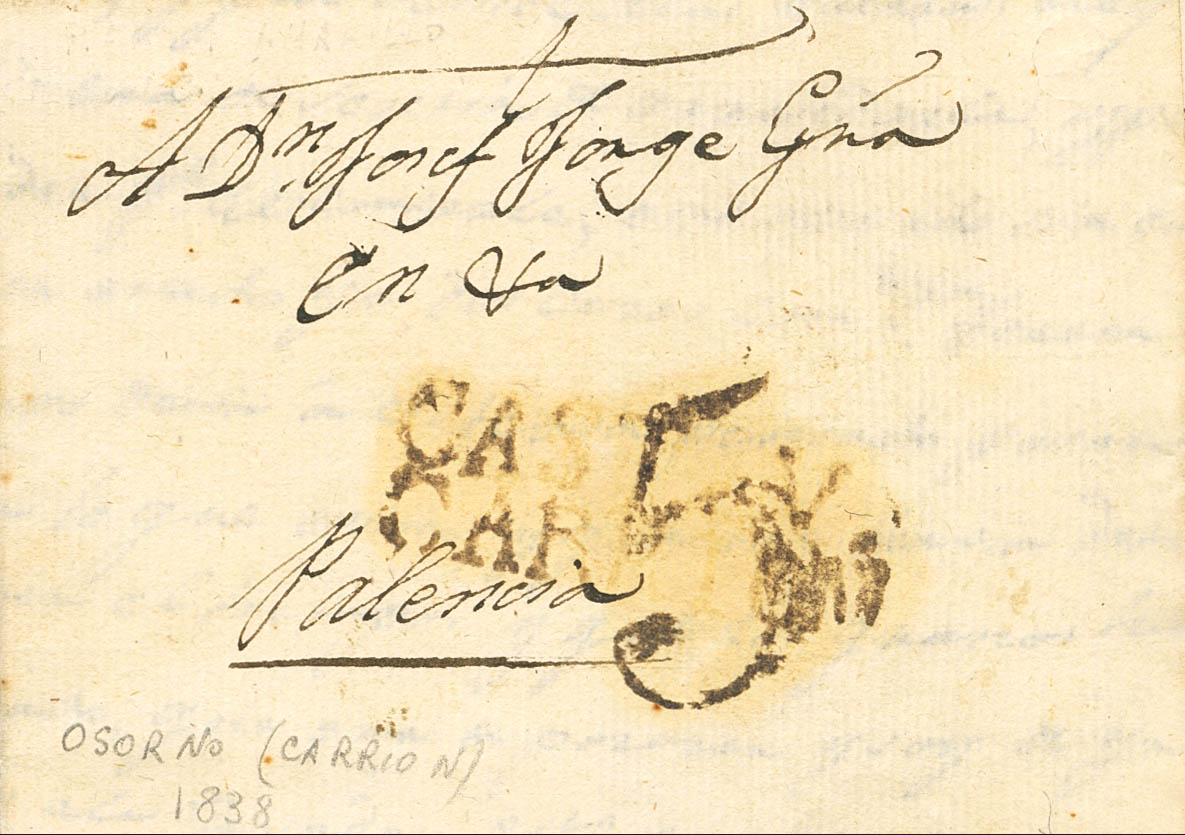 A Dn. Josef Jorge Gña
en Va
CAS 5 V
CARRION
Palencia
OSORNO (CARRION)
1838